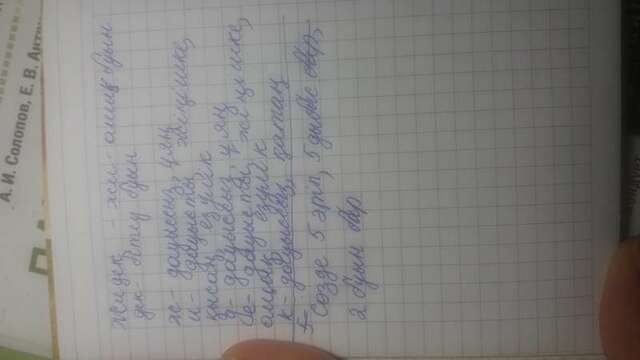 А. И. Солопов, Е. В. Антон
Жидек - жи - ашық буын
дек - бітеу буын
ж - дауыссыз, ұяң
и - дауысты, жіңішке,
қысаң, езулік
д - дауыссыз, ұяң
е - дауысты, жіңішке,
ашық, езулік
к - дауыссыз, қатаң
Сөзде 5 әріп, 5 дыбыс бар,
2 буын бар